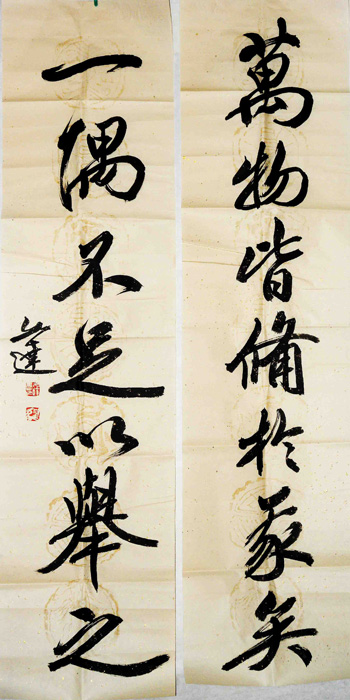 萬物皆備於我矣
一隅不足以舉之
達